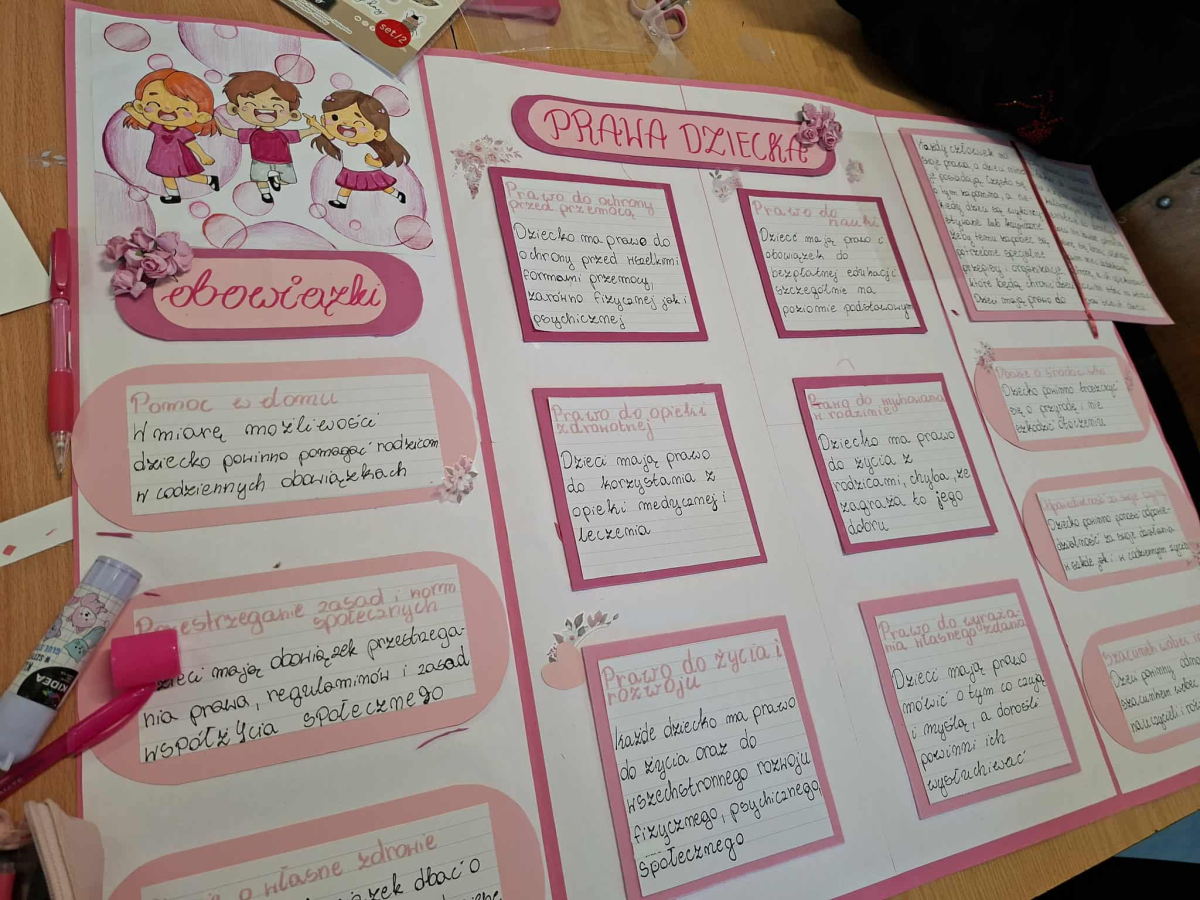 set/2
obowiązki
Pomoc w domu
W miarę możliwości
dziecko powinno pomagać rodzicom
w codziennych obowiązkach
zasad i norm
społecznych
mają obowiązek przestrzega-
nia prawa, regulaminów i zasad
współżycia społecznego
o własne zdrowie
dbać o
KIDEA
PRAWA DZIECKA
Prawo do ochrony
przed przemocą
Dziecko ma prawo do
ochrony przed wszelkimi
formami przemocy,
zarówno fizycznej jak i
psychicznej
Prawo do
nauki
Dzieci mają prawo i
obowiązek do
bezpłatnej edukacji
szczególnie na
poziomie podstawowym
Prawo do opieki
zdrowotnej
Dzieci mają prawo
do korzystania z
opieki medycznej i
leczenia
Prawo do wychowania
w rodzinie
Dziecko ma prawo
do życia z
rodzicami, chyba, że
zagraża to jego
dobru
Prawo do życia i
rozwoju
każde dziecko ma prawo
do życia oraz do
wszechstronnego rozwoju
fizycznego, psychicznego,
społecznego
Prawo do wyraża-
nia własnego zdania
Dzieci mają prawo
mówić o tym co czują
i myślą, a dorośli
powinni ich
wysłuchiwać
Każdy człowiek ma
swoje prawa, a dzieci
posiadają. Często się
o tym zapomina, a nie-
kiedy dzieci są wykorzy-
stywane lub krzywdzone
żeby temu zapobiec są
potrzebne specjalne
przepisy i organizacje
które będą chronić dzieci
Dzieci mają prawo do
Dziecko powinno troszczyć
się o przyrodę i nie
szkodzić otoczeniu
Odpowiedzialność za swoje czyny
Dziecko powinno ponosić odpowie-
dzialność za swoje działania
w szkole jak i w codziennym życiu
Szacunek wobec
Dzieci powinny
szacunkiem wobec
nauczycieli i